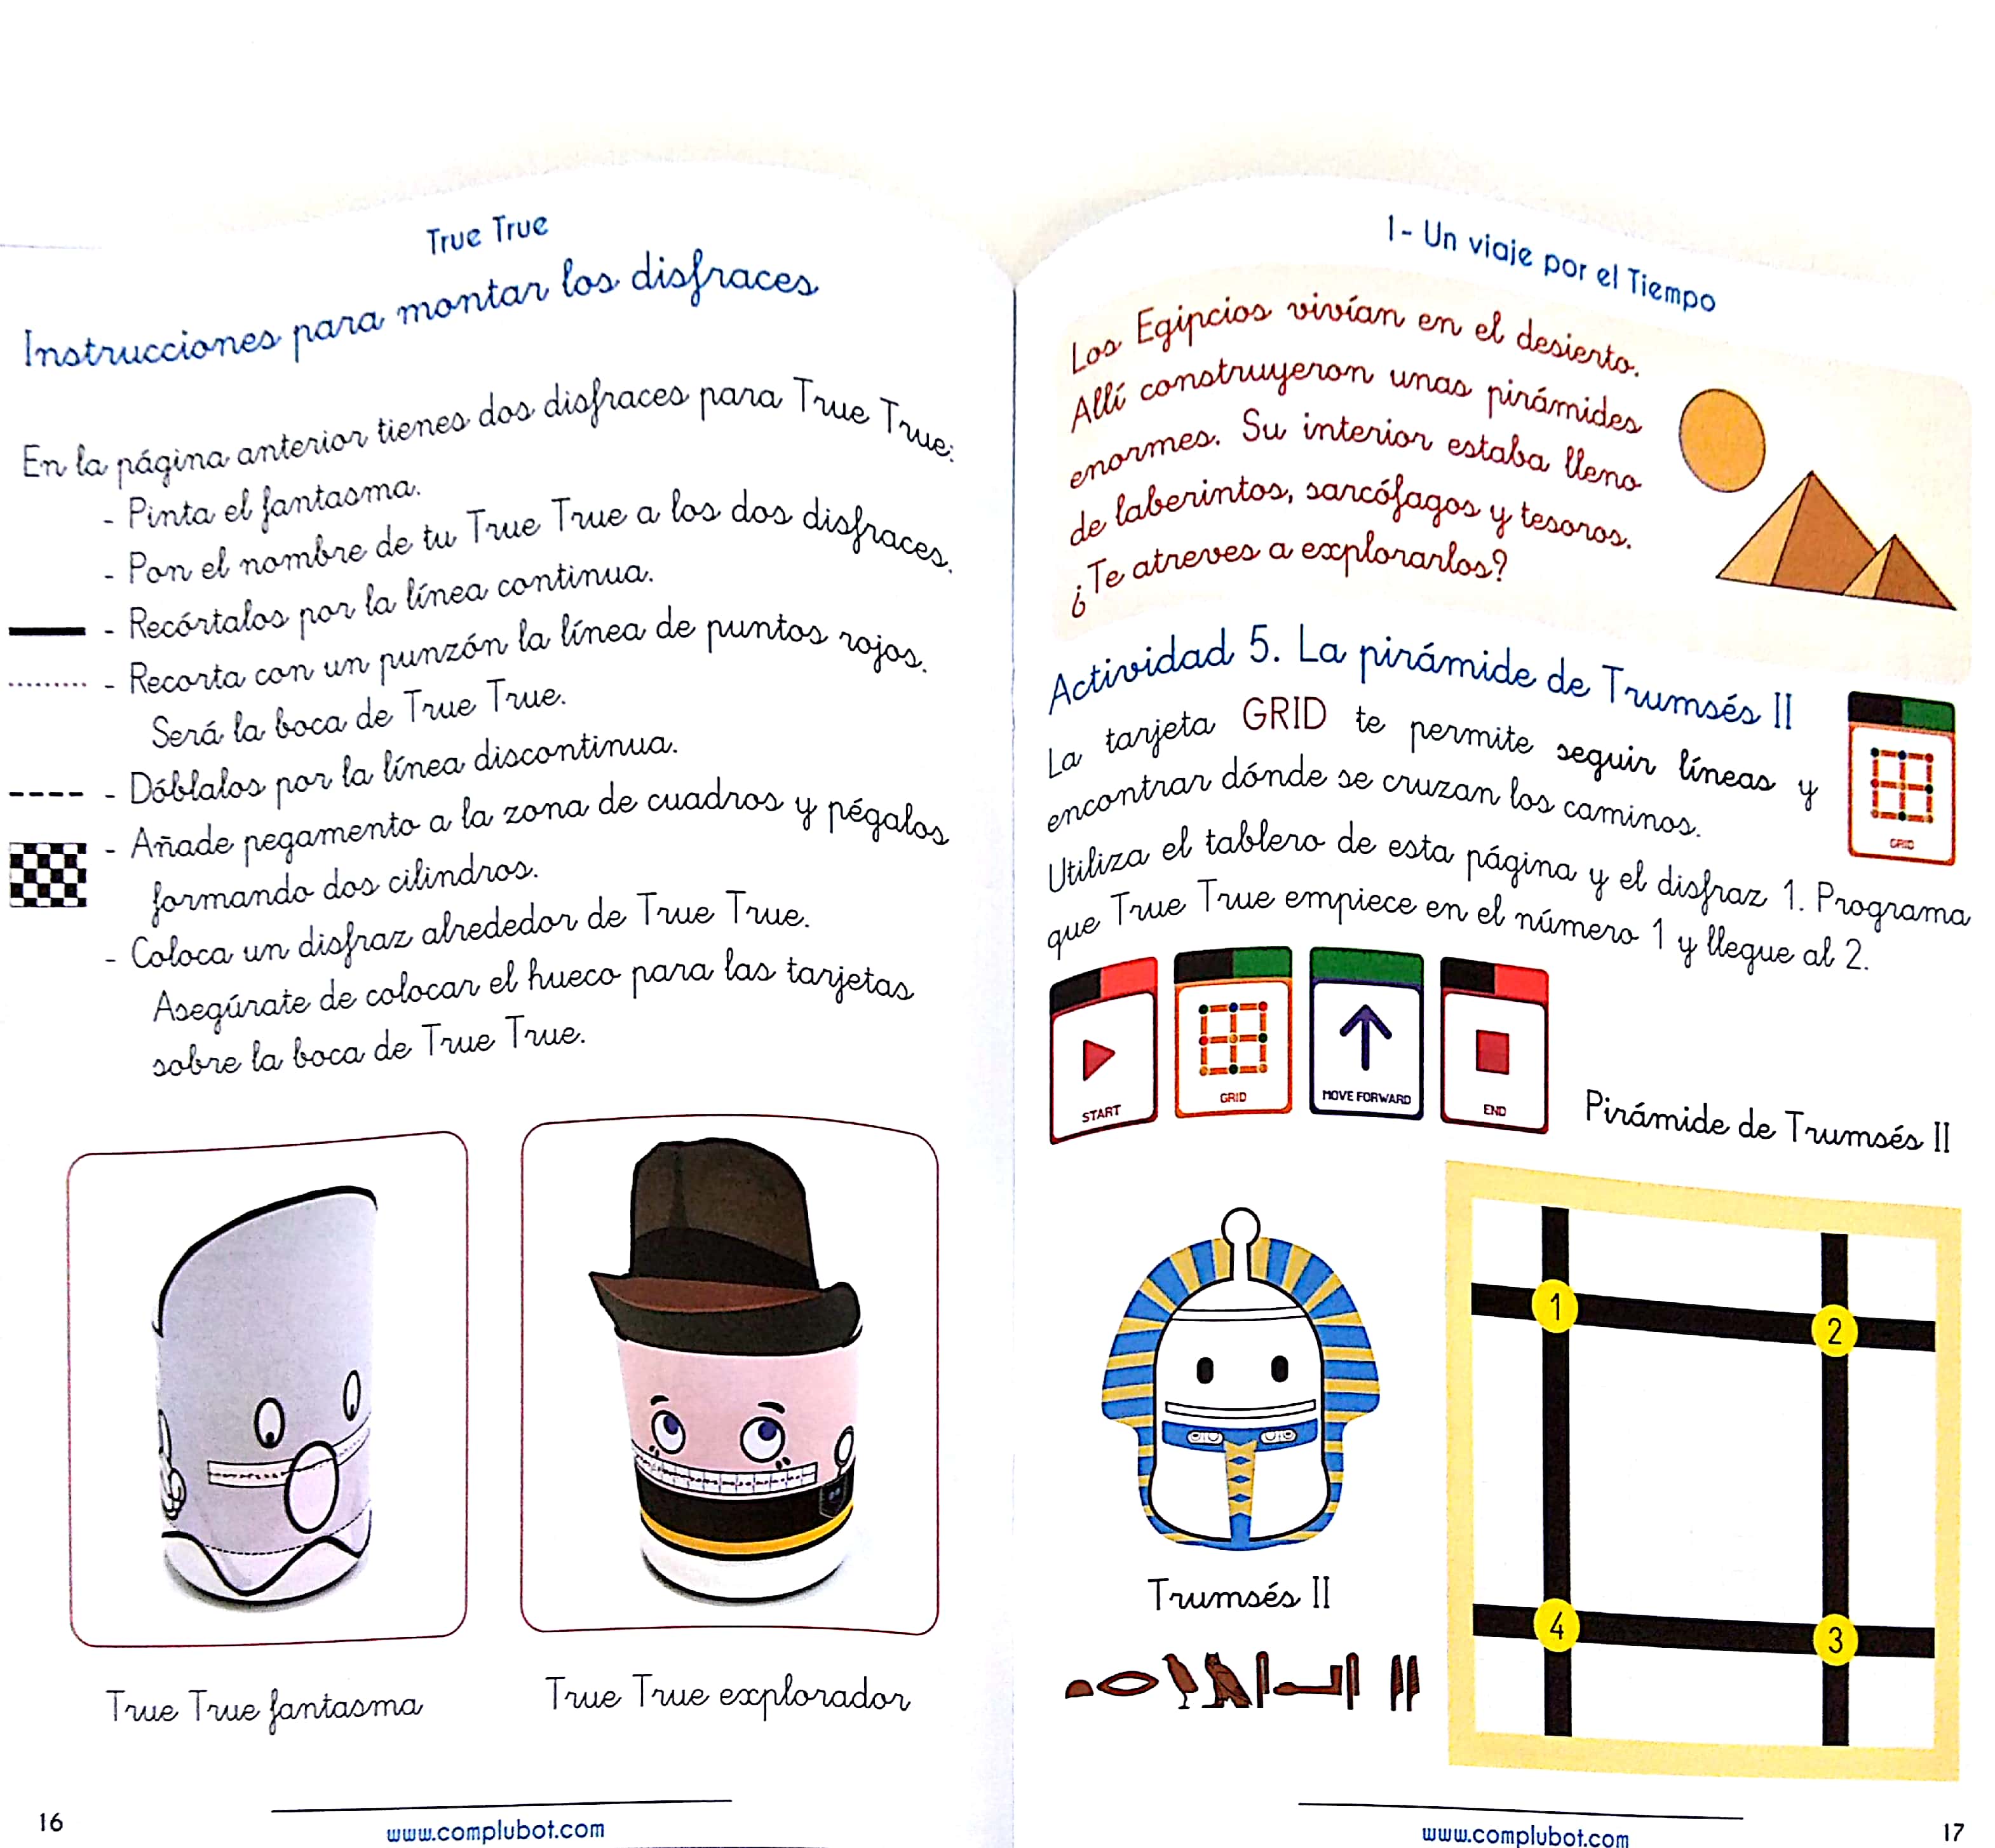 True True
Instrucciones para montar los disfraces
En la página anterior tienes dos disfraces para True True:
- Pinta el fantasma.
- Pon el nombre de tu True True a los dos disfraces.
- Recórtalos por la línea continua.
- Recorta con un punzón la línea de puntos rojos.
Será la boca de True True.
- Dóblalos por la línea discontinua.
- Añade pegamento a la zona de cuadros y pégalos
formando dos cilindros.
- Coloca un disfraz alrededor de True True.
Asegúrate de colocar el hueco para las tarjetas
sobre la boca de True True.
True True fantasma
True True explorador
16
www.complubot.com
1- Un viaje por el Tiempo
Los Egipcios vivían en el desierto.
Allí construyeron unas pirámides
enormes. Su interior estaba lleno
de laberintos, sarcófagos y tesoros.
¿Te atreves a explorarlos?
Actividad 5. La pirámide de Trumsés II
La tarjeta GRID te permite seguir líneas y
encontrar dónde se cruzan los caminos.
GRID
Utiliza el tablero de esta página y el disfraz 1. Programa
que True True empiece en el número 1 y llegue al 2.
START
GRID
MOVE FORWARD
END
Pirámide de Trumsés II
1
2
4
3
Trumsés II
www.complubot.com
17